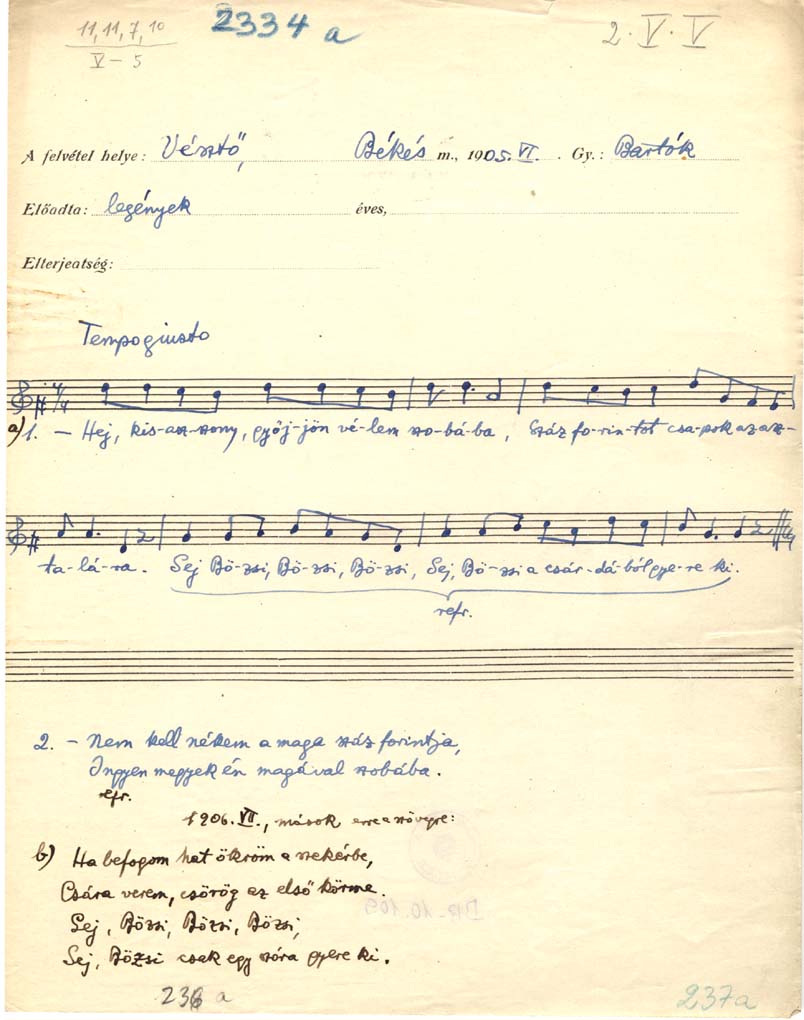 11, 11, 7, 10
V – 5
2334 a
2. V. V
A felvétel helye: Vésztő, Békés m., 1905. VI. Gy.: Bartók
Előadta: legények éves,
Elterjedtség:
Tempo giusto
4/4
a) 1. – Hej, kis-asz-szony, gyöj-jön vé-lem szo-bá-ba, Száz fo-rin-tot csa-pok az asz-
ta-lá-ra. Sej Bö-zsi, Bö-zsi, Bö-zsi, Sej, Bö-zsi a csár-dá-ból gye-re ki.
refr.
2. – Nem kell nékem a maga száz forintja,
Ingyen megyek én magával szobába.
refr.
1906. VII., mások erre a szövegre:
b) Ha befogom hat ökröm a szekérbe,
Csára verem, csörög az első körme.
Sej, Bözsi, Bözsi, Bözsi,
Sej, Bözsi csak egy szóra gyere ki.
BR-10.109
236 a
237a